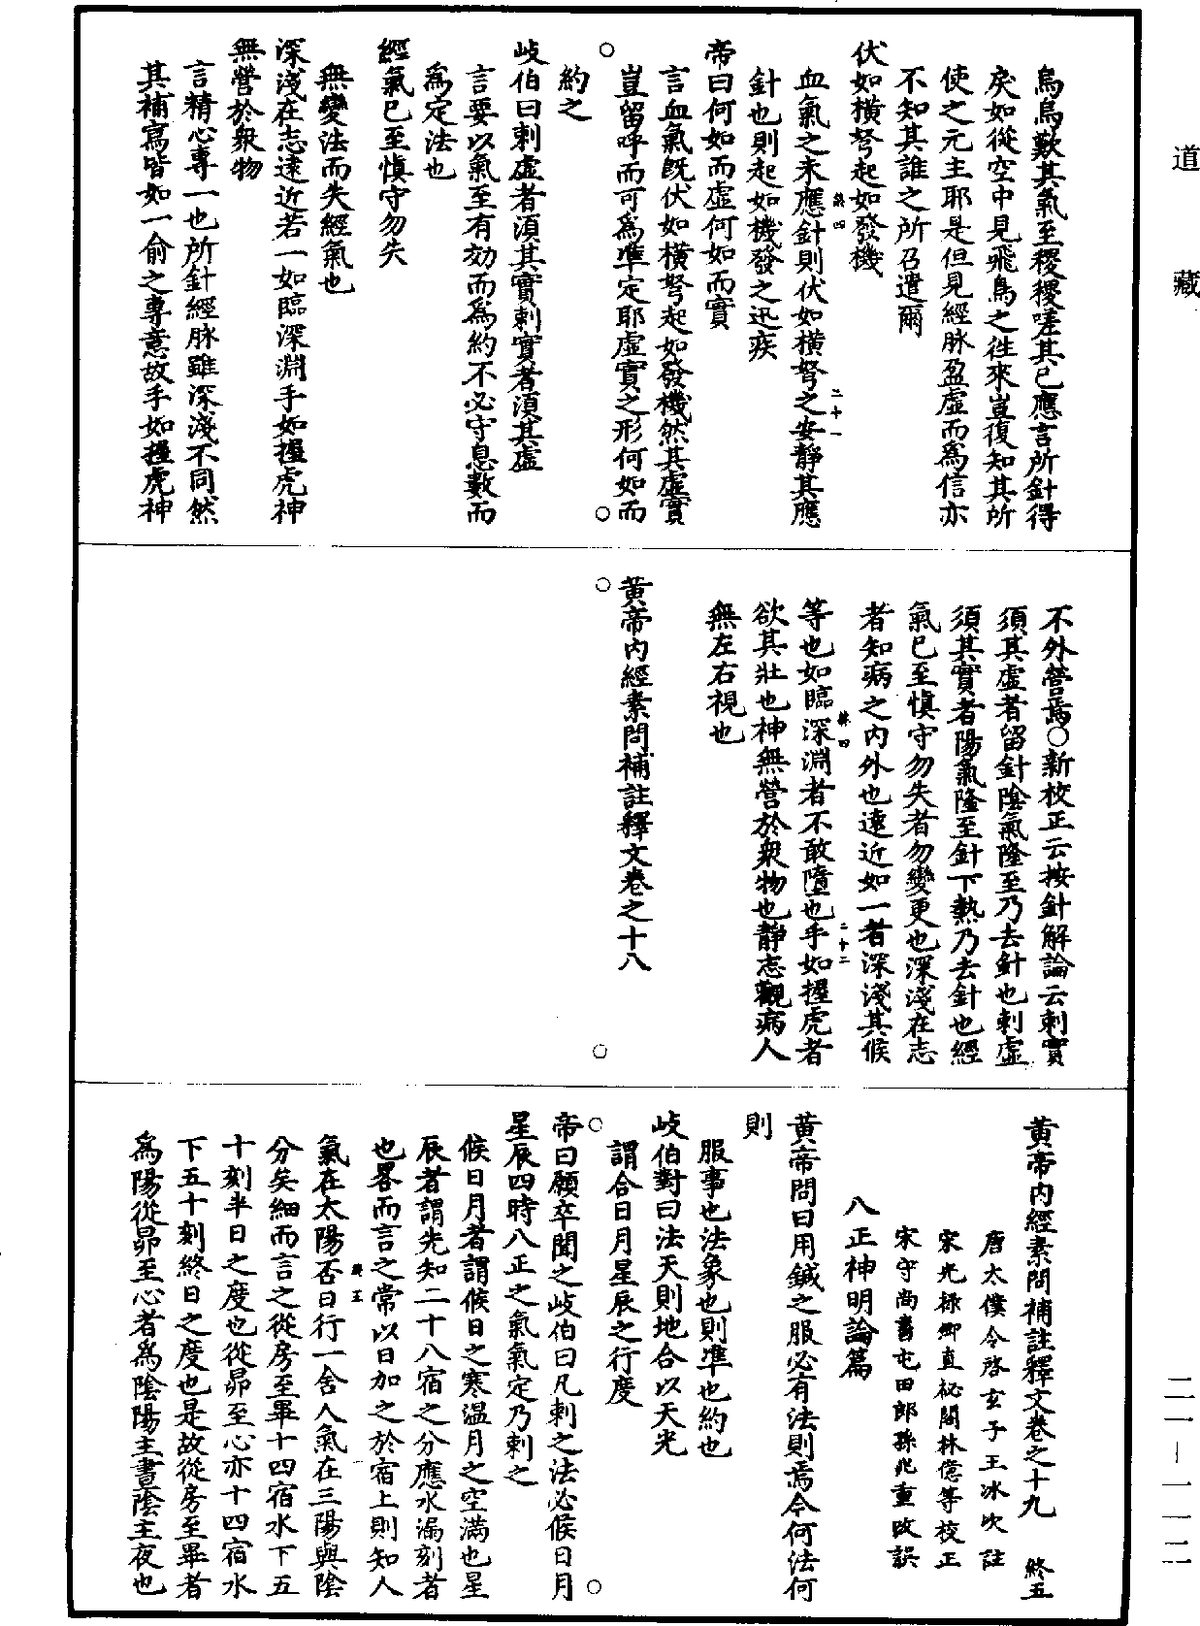 道藏
烏烏歎其氣至稷稷嗟其已應言所針得
失如從空中見飛鳥之往來豈復知其所
使之元主耶是但見經脉盈虛而為信亦
不知其誰之所召遣爾
伏如橫弩起如發機
血氣之未應針則伏如橫弩之安靜其應
針也則起如機發之迅疾
帝曰何如而虛何如而實
言血氣既伏如橫弩起如發機然其虛實
豈留呼而可為準定耶虛實之形何如而
約之
岐伯曰刺虛者須其實刺實者須其虛
言要以氣至有効而為約不必守息數而
為定法也
經氣已至慎守勿失
無變法而失經氣也
深淺在志遠近若一如臨深淵手如握虎神
無營於衆物
言精心專一也所針經脉雖深淺不同然
其補寫皆如一俞之專意故手如握虎神
不外營焉○新校正云按針解論云刺實
須其虛者留針陰氣隆至乃去針也刺虛
須其實者陽氣隆至針下熱乃去針也經
氣已至慎守勿失者勿變更也深淺在志
者知病之內外也遠近如一者深淺其候
等也如臨深淵者不敢墮也手如握虎者
欲其壯也神無營於衆物也靜志觀病人
無左右視也
黃帝內經素問補註釋文卷之十八
黃帝內經素問補註釋文卷之十九 終五
唐太僕令啓玄子王冰次註
宋光祿卿直祕閣林億等校正
宋守尚書屯田郎孫兆重改誤
八正神明論篇
黃帝問曰用鍼之服必有法則焉今何法何
則
服事也法象也則準也約也
岐伯對曰法天則地合以天光
謂合日月星辰之行度
帝曰願卒聞之岐伯曰凡刺之法必候日月
星辰四時八正之氣氣定乃刺之
候日月者謂候日之寒溫月之空滿也星
辰者謂先知二十八宿之分應水漏刻者
也畧而言之常以日加之於宿上則知人
氣在太陽否日行一舍人氣在三陽與陰
分矣細而言之從房至畢十四宿水下五
十刻半日之度也從昴至心亦十四宿水
下五十刻終日之度也是故從房至畢者
為陽從昴至心者為陰陽主晝陰主夜也
二一—一一二